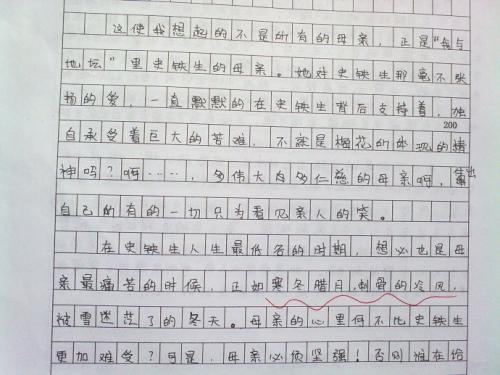 这使我想起的不是所有的母亲，正是“我与
地坛”里史铁生的母亲。她对史铁生那毫不张
扬的爱，一直默默的在史铁生背后支持着，独
200
自承受着巨大的苦难，不就是梅花所体现的精
神吗？啊……，多伟大自多仁慈的母亲啊，付出
自己的有的一切只为看见亲人的笑。
在史铁生人生最低谷的时期，想必也是母
亲最痛苦的时候，正如寒冬腊月，刺骨的冷风，
被雪迷茫了的冬天。母亲的心里何不比史铁生
更加难受？可是，母亲必须坚强！否则谁在给